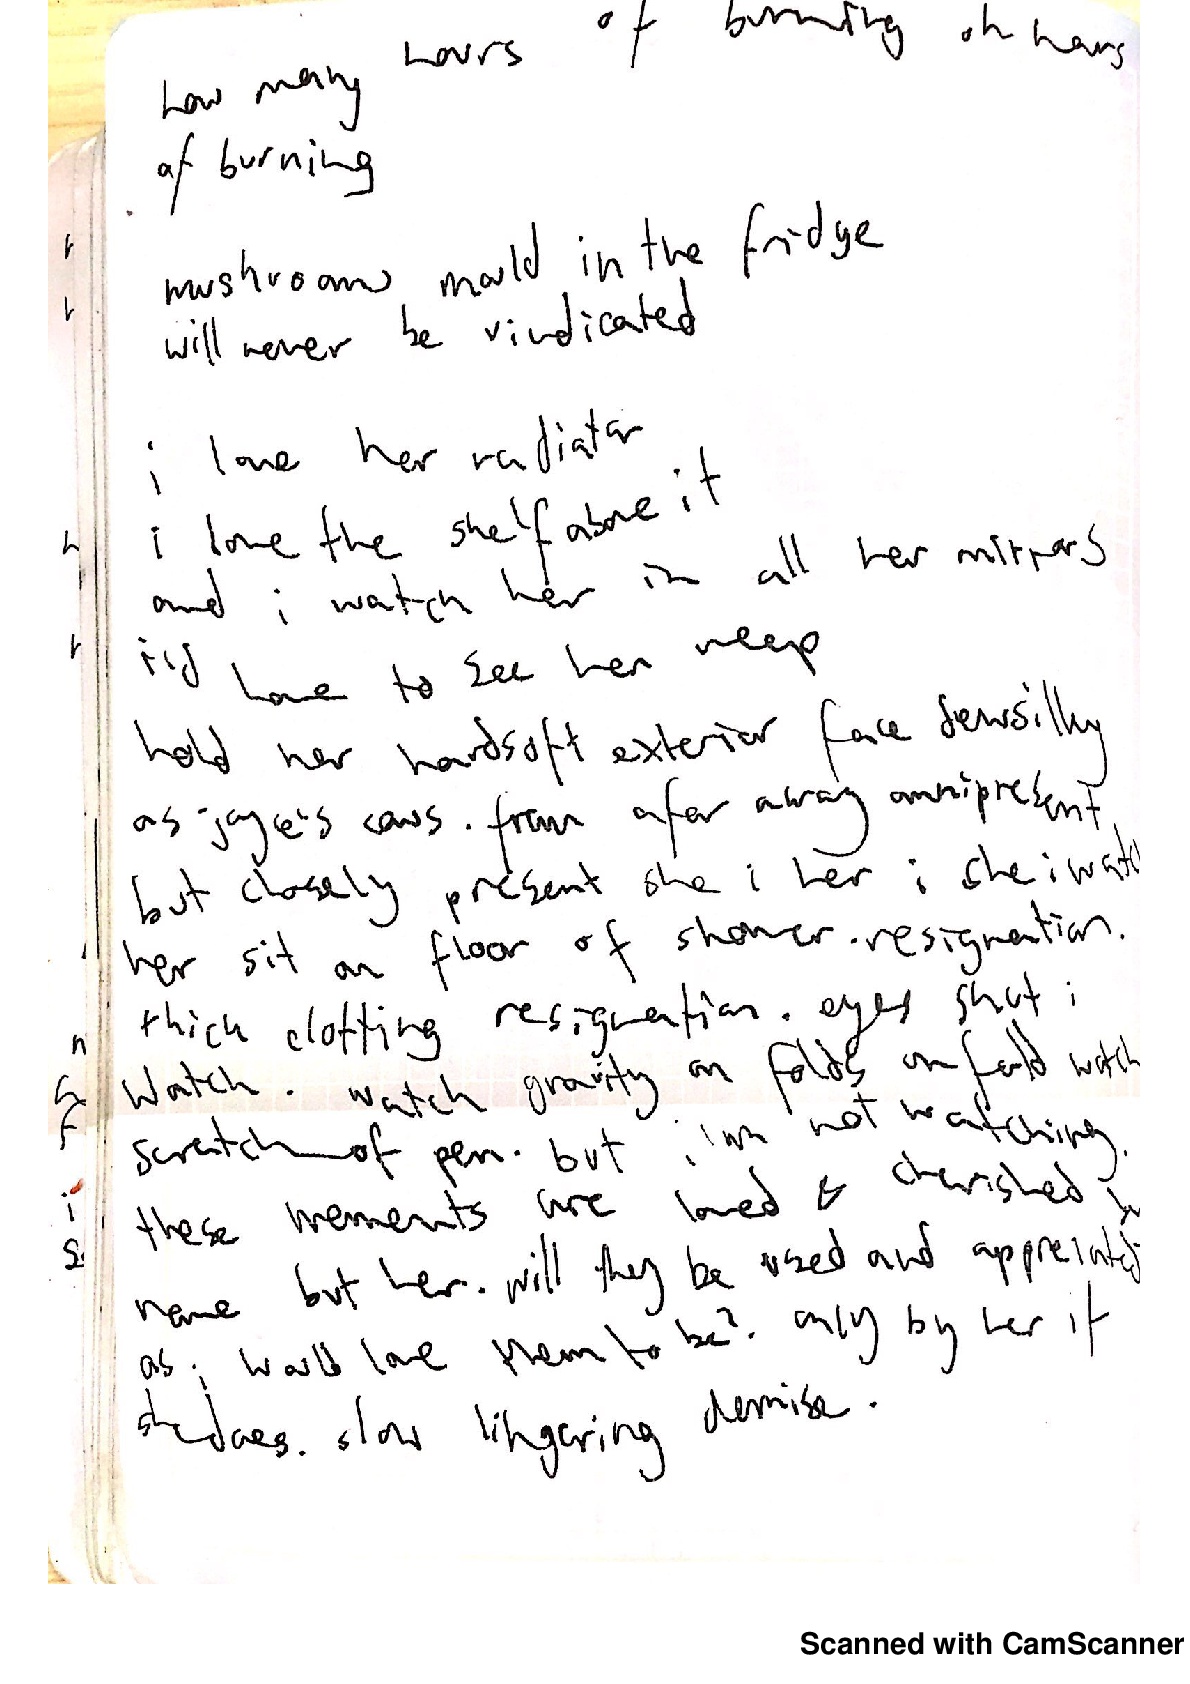 how many hours of burning oh hours
of burning
mushroom mould in the fridge
will never be vindicated
i love her radiator
i love the shelf above it
and i watch her in all her mirrors
i'd love to see her weep
hold her hardsoft exterior face dewsilky
as joyce's cows. from afar away omnipresent
but closely present she i her i she i watch
her sit on floor of shower. resignation.
thick clotting resignation. eyes shut i
watch. watch gravity on folds on fold watch
scratch of pen. but i'm not watching.
these moments are loved & cherished by
none but her. will they be used and appreciated
as i would love them to be?. only by her if
she does. slow lingering demise.
Scanned with CamScanner